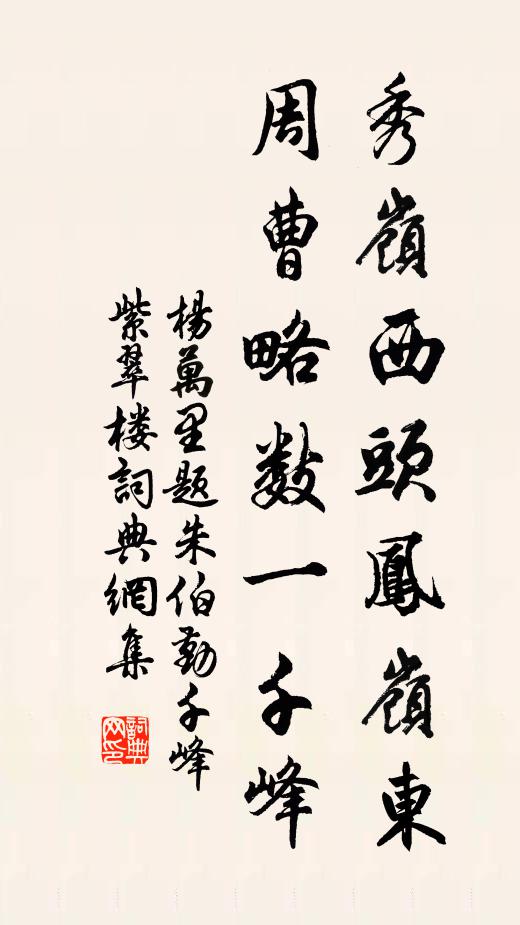 秀嶺西頭鳳嶺東
周曹略数一千峰
楊萬里題朱伯勤千峰
紫翠楼詞典網集
詞典網印